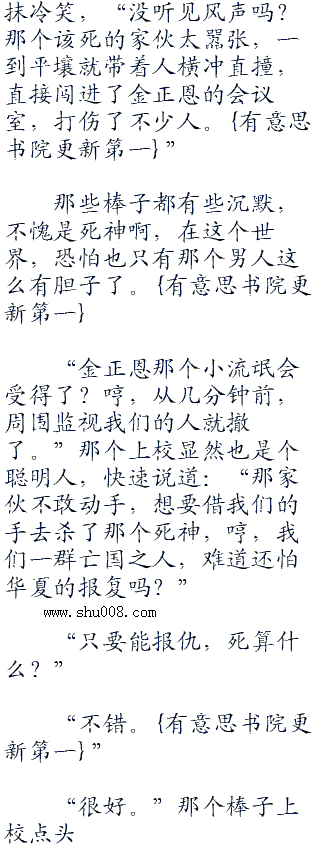 抹冷笑，“没听见风声吗？
那个该死的家伙太嚣张，一
到平壤就带着人横冲直撞，
直接闯进了金正恩的会议
室，打伤了不少人。{有意思
书院更新第一}”
那些棒子都有些沉默，
不愧是死神啊，在这个世
界，恐怕也只有那个男人这
么有胆子了。{有意思书院更
新第一}
“金正恩那个小流氓会
受得了？哼，从几分钟前，
周围监视我们的人就撤
了。”那个上校显然也是个
聪明人，快速说道：“那家
伙不敢动手，想要借我们的
手去杀了那个死神，哼，我
们一群亡国之人，难道还怕
华夏的报复吗？”
www.shu008.com
“只要能报仇，死算什
么？”
“不错。{有意思书院更
新第一}”
“很好。”那个棒子上
校点头